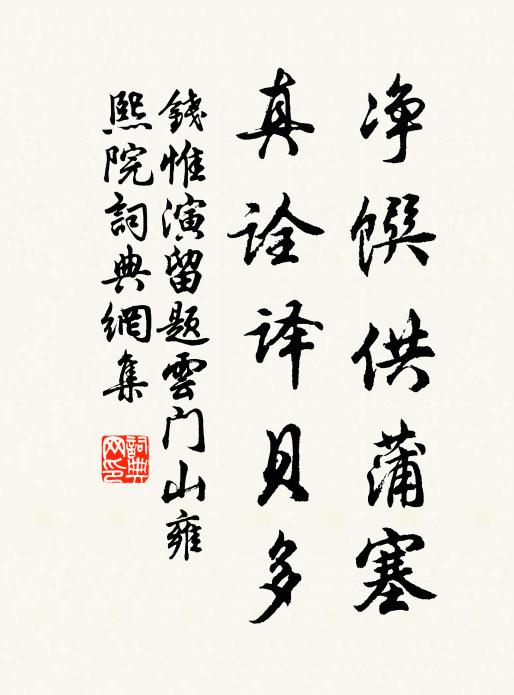 净馔供蒲塞
真诠译贝多
錢惟演留題雲门山雍
熙院詞典網集
詞典网印